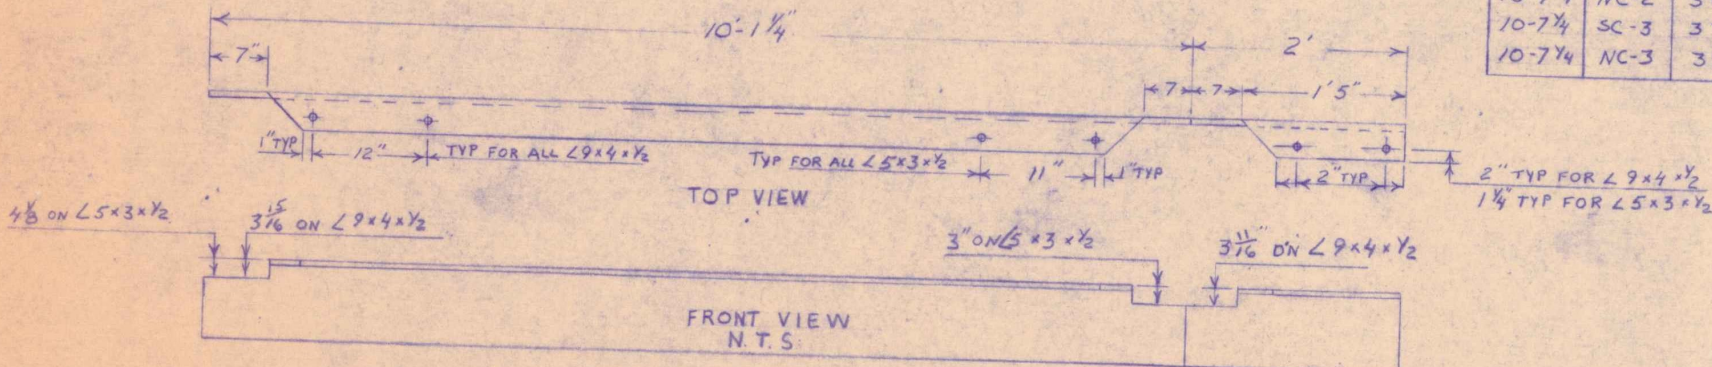 10-7¼ NC-2 3
10-7¼ SC-3 3
10-7¼ NC-3 3
10'-1¼"
2'
7"
7 7 1'5"
1" TYP 12" TYP FOR ALL ∠9x4x½ TYP FOR ALL ∠5x3x½ 11" 1" TYP 2" TYP
2" TYP FOR ∠9x4x½
1¼" TYP FOR ∠5x3x½
TOP VIEW
4⅛ ON ∠5x3x½
3 15/16 ON ∠9x4x½
3" ON ∠5x3x½
3 11/16" ON ∠9x4x½
FRONT VIEW
N.T.S.